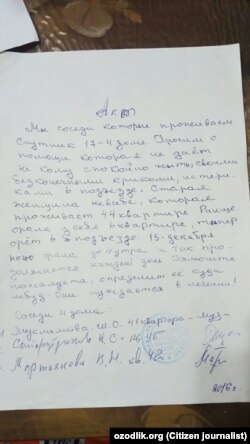 Акт
Мы соседи которые проживаем
Спутник 17-4 доме. Просим о
помощи которая не даёт
не кому спокойно жить, своими
безконечными криками, истери
ками в подъезде. Старая
женщина невебе, которая
проживает 44 квартире Раньше
орала у себя в квартире, теперь
орёт в подъезде. 19-декабря
ночь до 4 утра и так про-
должается каждый день Заберите
пожалуйста, определите её куда
небудь она нуждается в лечении!
Соседи 4 дома:
Муслимова. Ш.С. 41 квартира -
Н.С. кв 46
Мартынова В.Н. кв. 42
2016 г.
ozodlik.org (Citizen journalist)